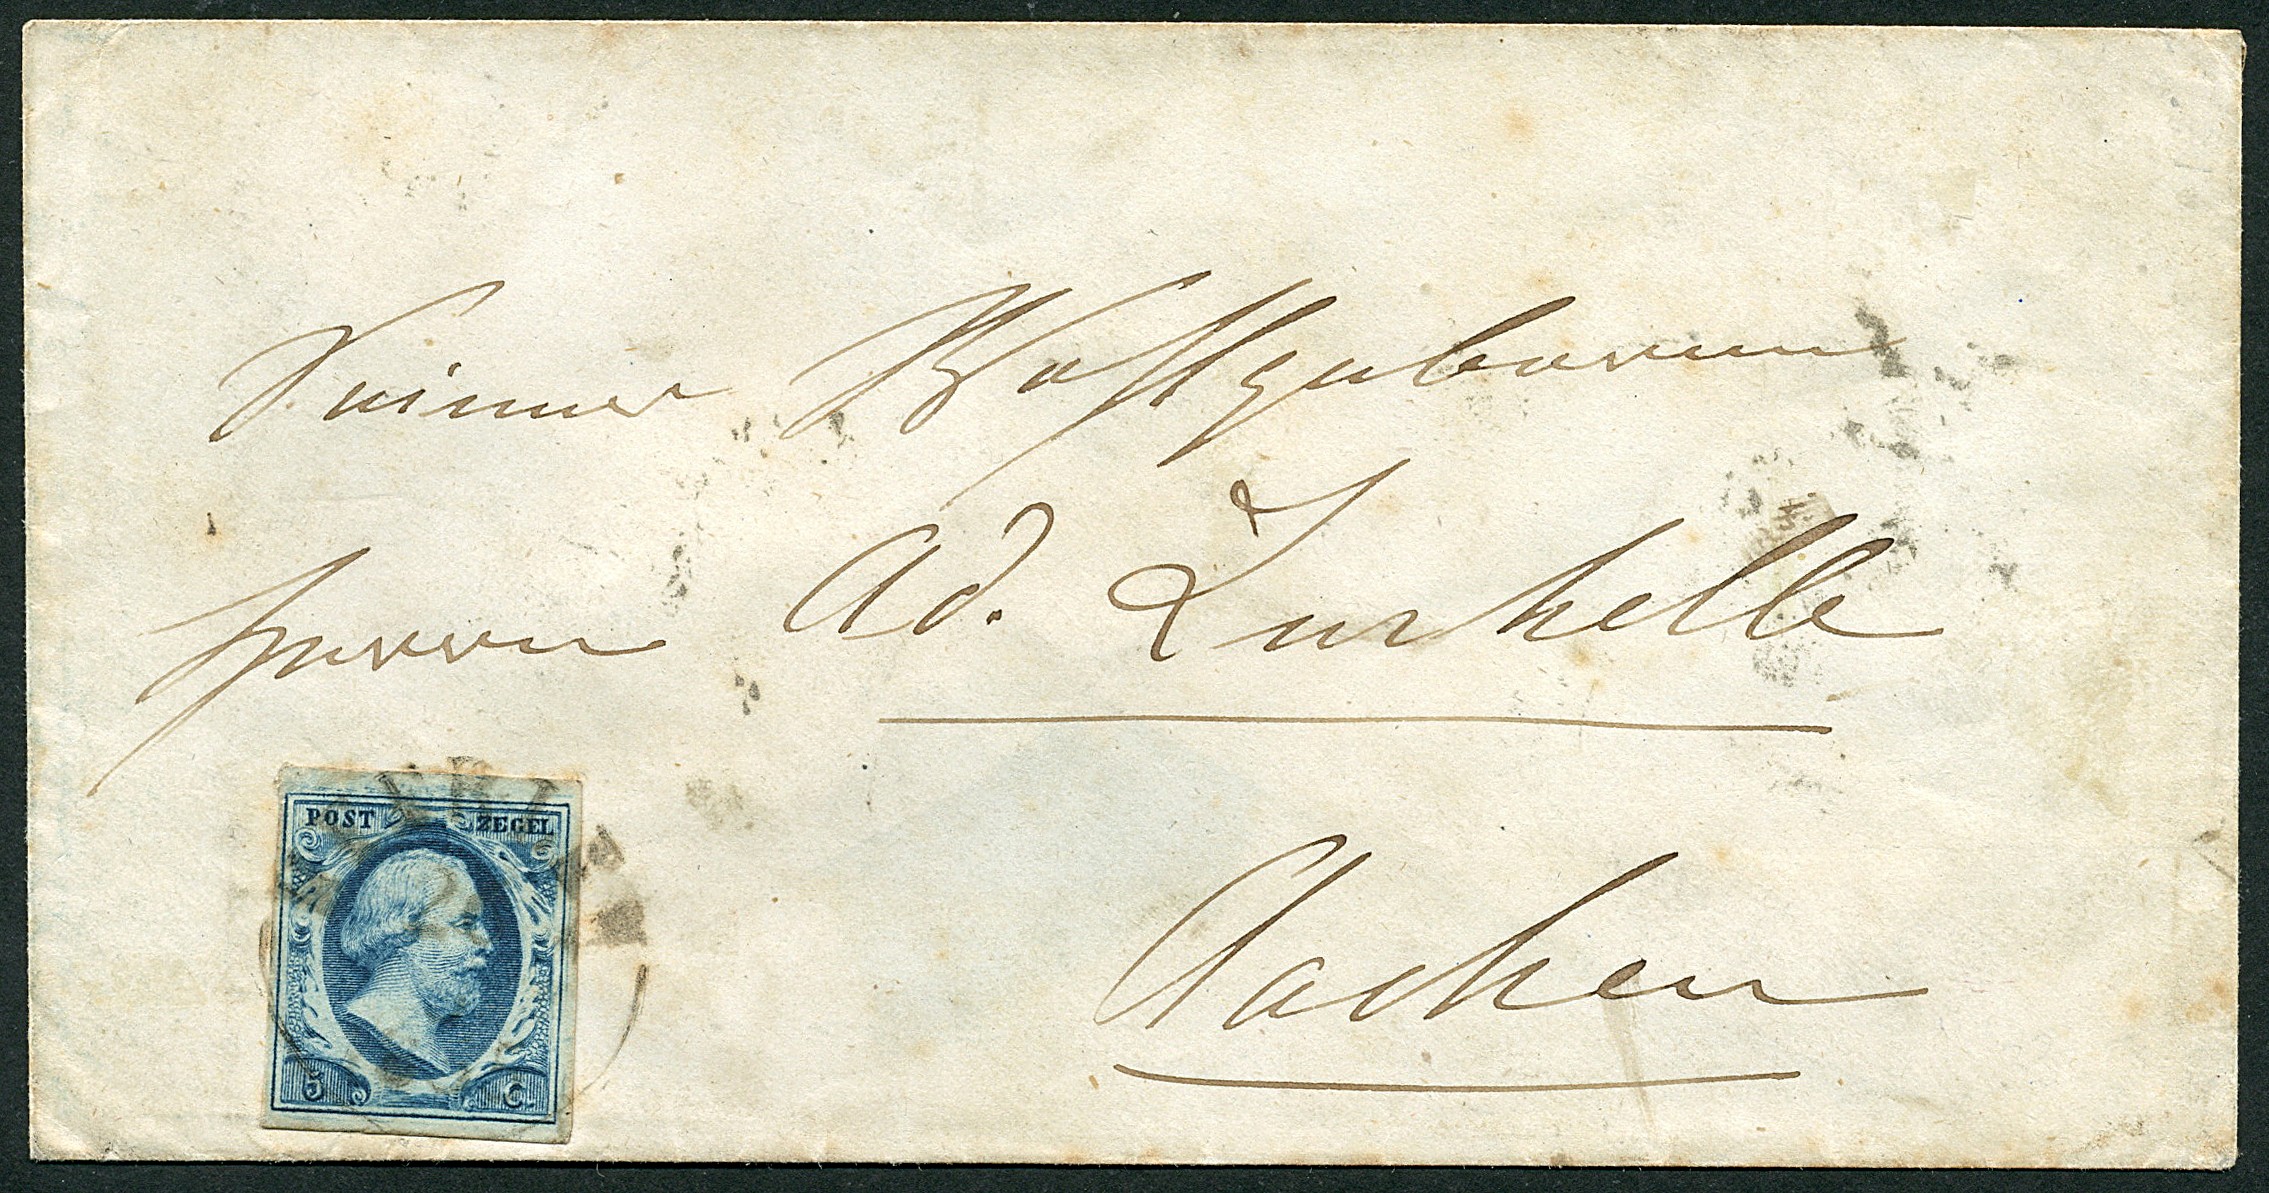 Seiner Wohlgeboren
Herrn Ad. Zurhelle
Aachen
POST ZEGEL
5 C.